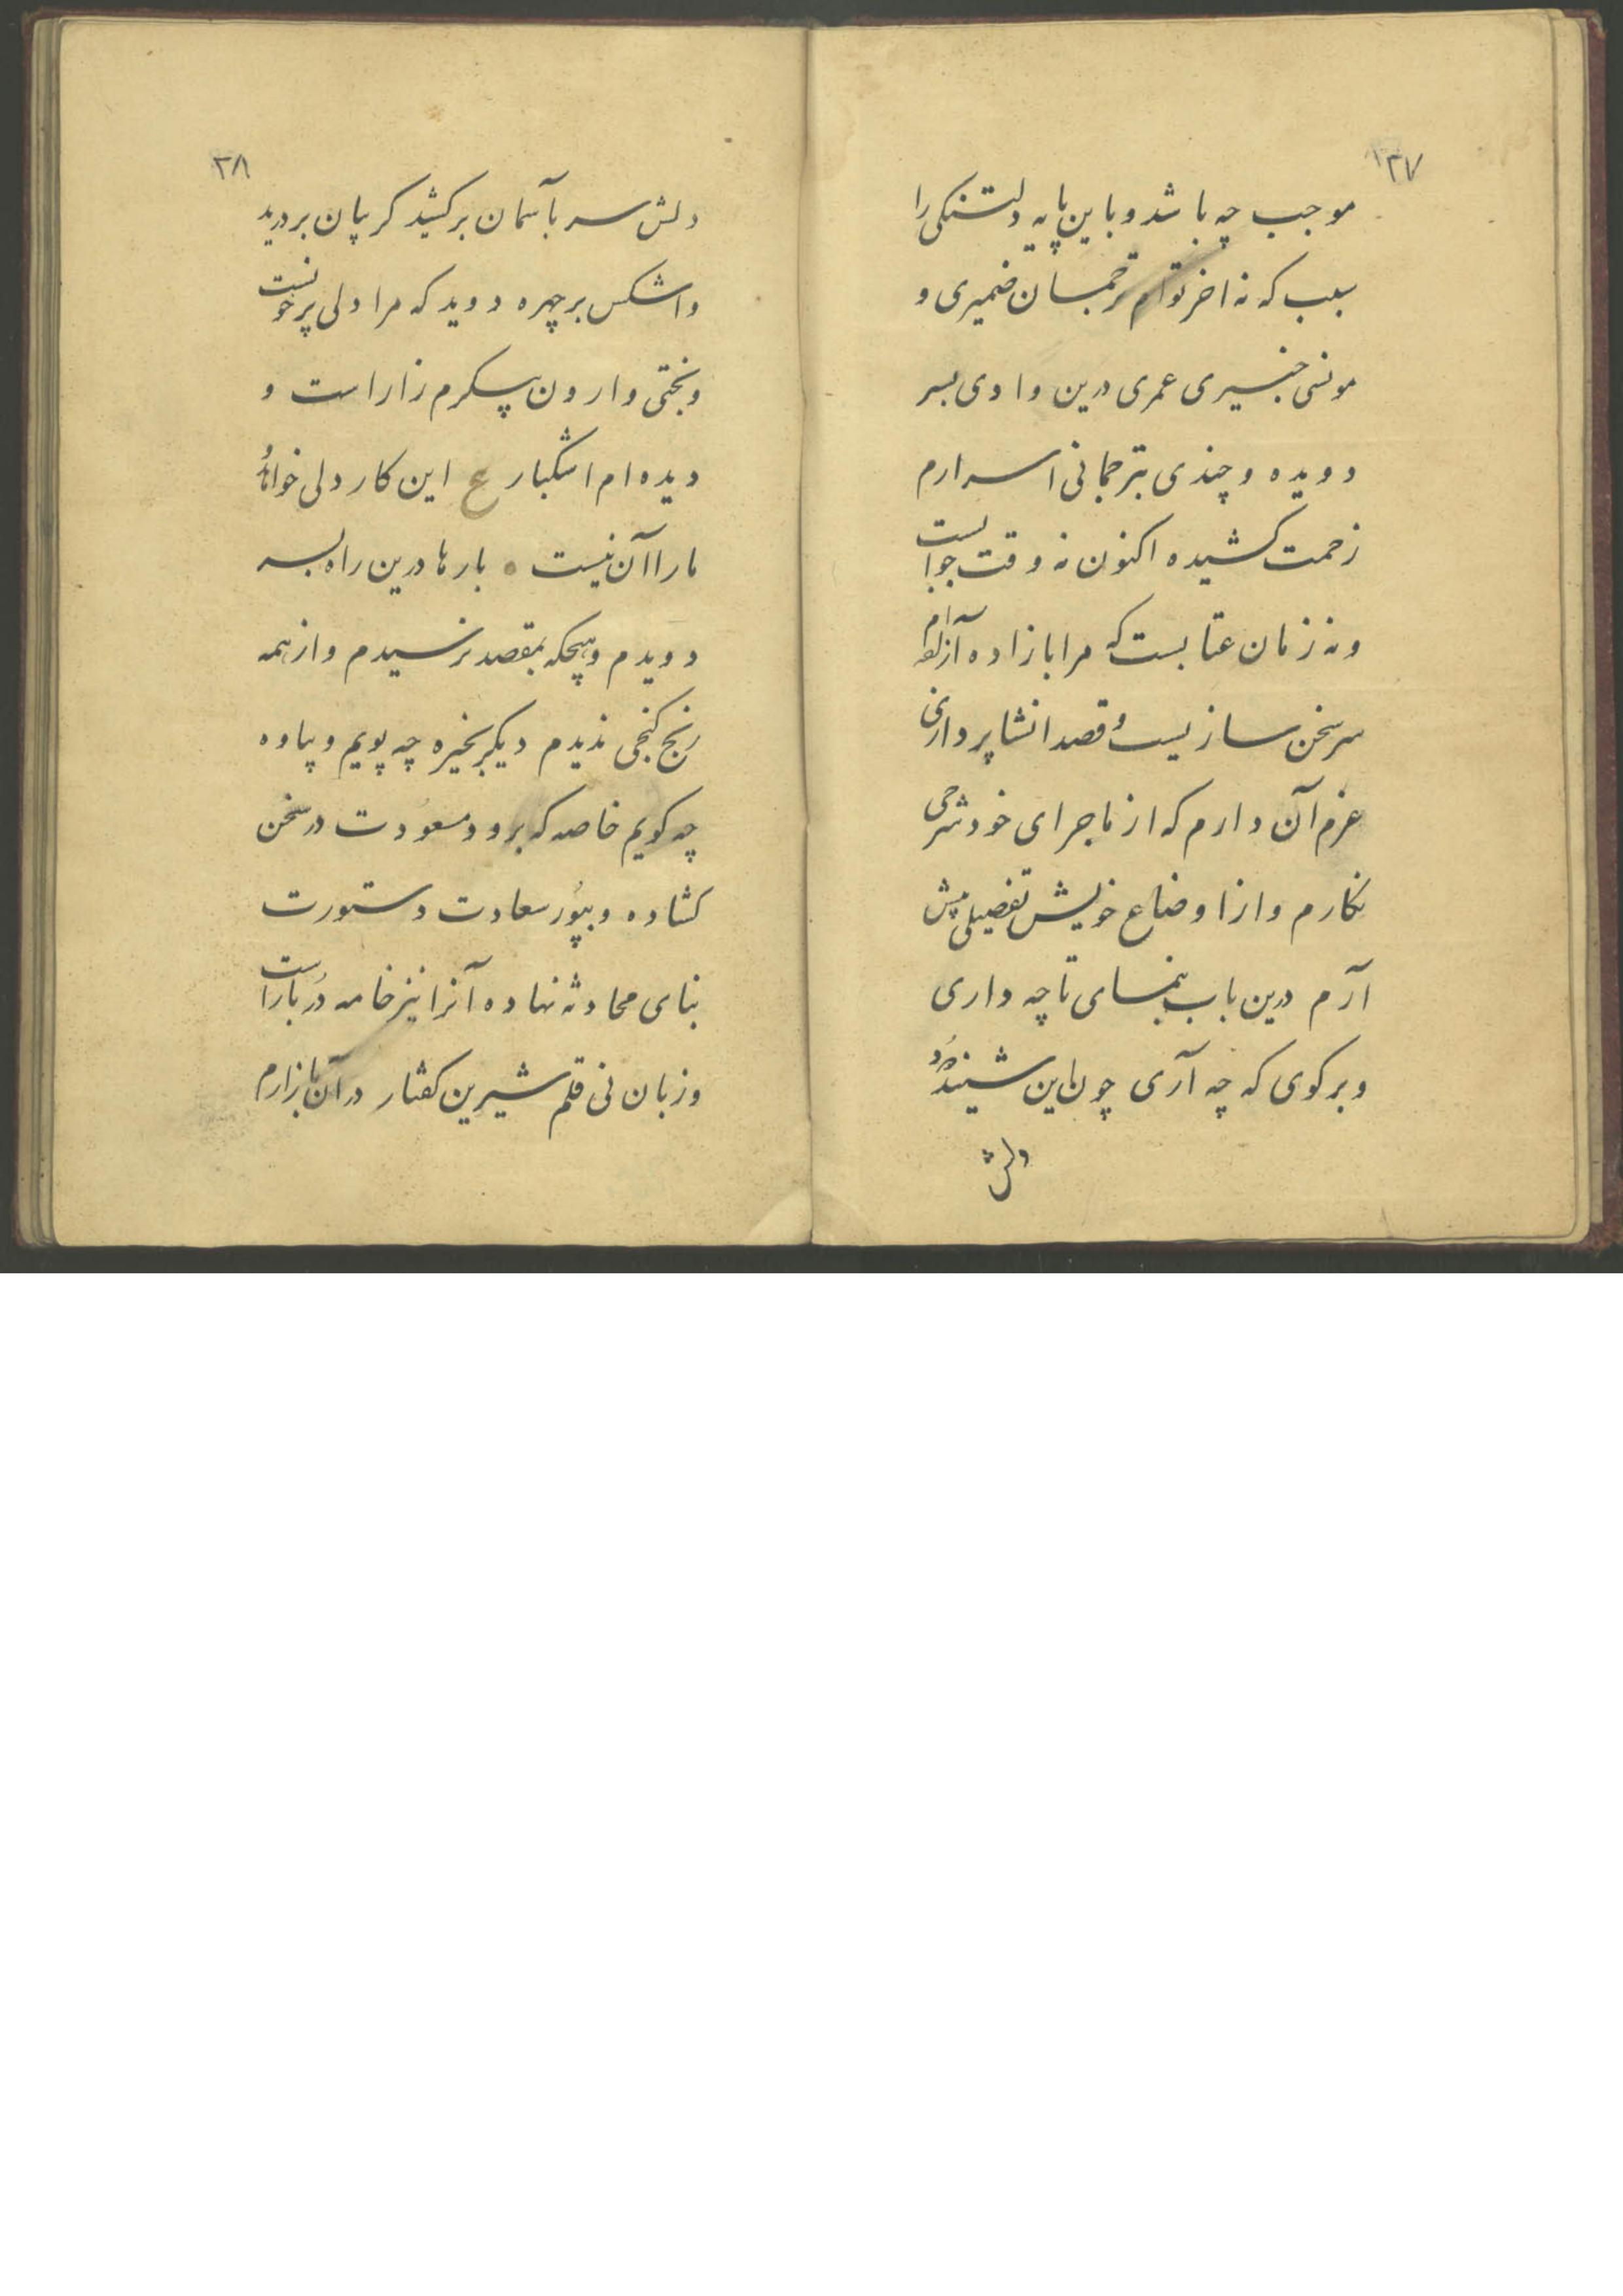 ۱۳۷
موجب چه باشد و باین پایه دلتنکی را
سبب که نه اخر توام ترجمان ضمیری و
مونسی خبیری عمری درین وادی بسر
دویده و چندی بترجمانی اسرارم
زحمت کشیده اکنون نه وقت جوابست
و نه زمان عتابست که مرا بازاده آزاده‌ام
سر سخن سازیست و قصد انشا پردازی
عزم آن دارم که از ماجرای خود شرحی
نکارم و از اوضاع خویش تفصیلی پیش
آرم درین باب بنمای تا چه داری
و برکوی که چه آری چون این شنید
دلش
۳۸
دلش سر بآسمان برکشید کریبان بردرید
و اشکش بر چهره دوید که مرا دلی پرخونست
و بختی وارون پیکرم زار است و
دیده‌ام اشکبار ع این کار دلی خواهد و
ما را آن نیست بارها درین راه بسر
دویدم و هیچکه بمقصد نرسیدم و از همه
رنج کنجی ندیدم دیکر بخیره چه پویم و یاوه
چه کویم خاصه که برود مسعودت در سخن
کشاده و بپور سعادت دستورت
بنای محادثه نهاده آنرا نیز خامه دُربار است
و زبان نی قلم شیرین کفتار در آن بازارم